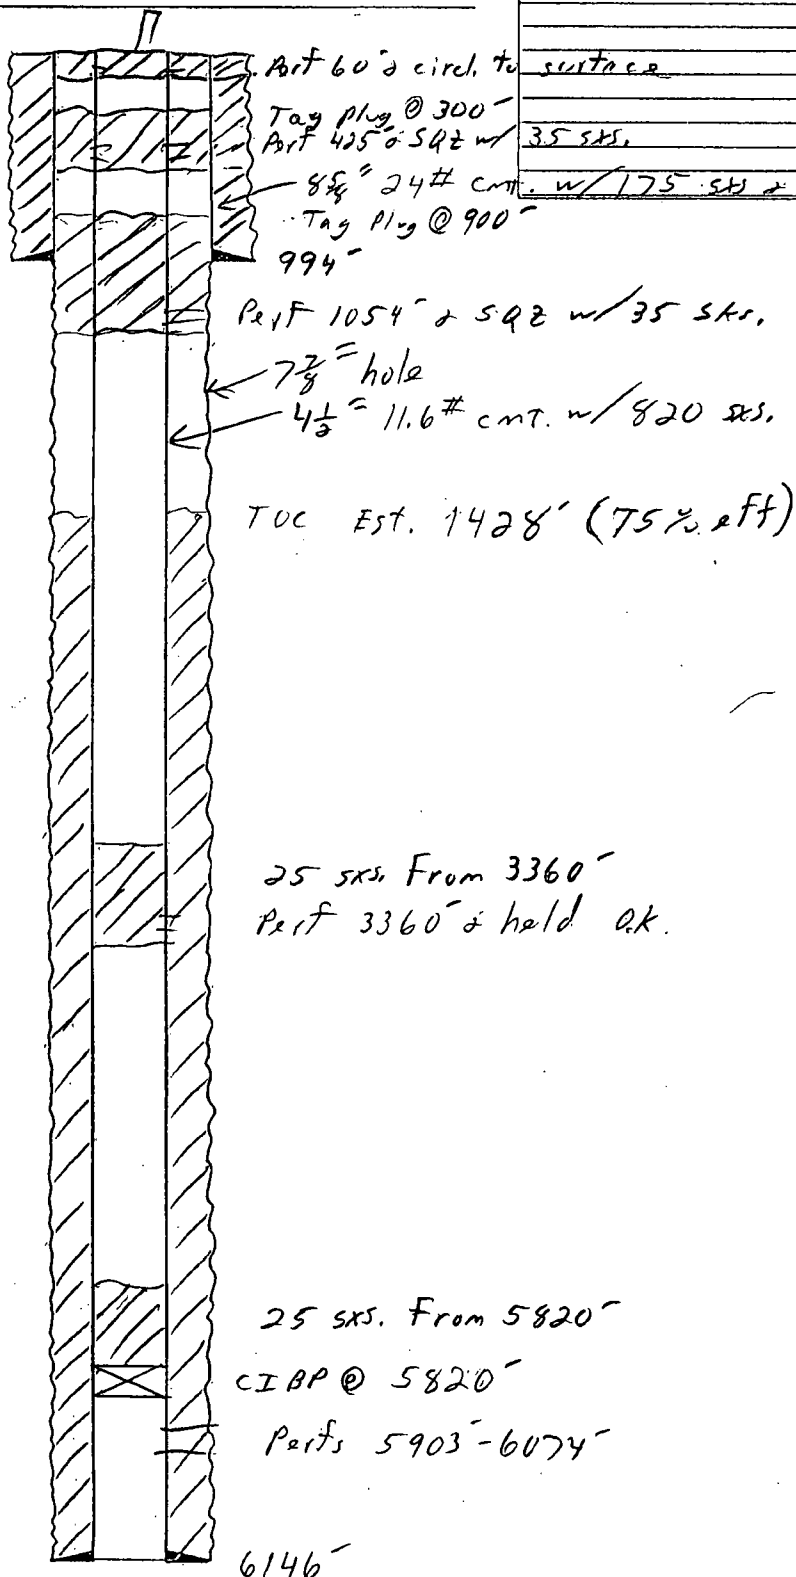 Perf 60' & circl. to surface
Tag Plug @ 300'
Perf 425' & SQZ w/ 35 sxs.
8 5/8" 24# cmt. w/ 175 sxs &
Tag Plug @ 900'
994'
Perf 1054' & SQZ w/ 35 sks.
7 7/8" hole
4 1/2" 11.6# cmt. w/ 820 sxs.
TOC Est. 1428' (75% eff)
25 sxs. From 3360'
Perf 3360' & held O.K.
25 sxs. From 5820'
CIBP @ 5820'
Perfs 5903'-6074'
6146'